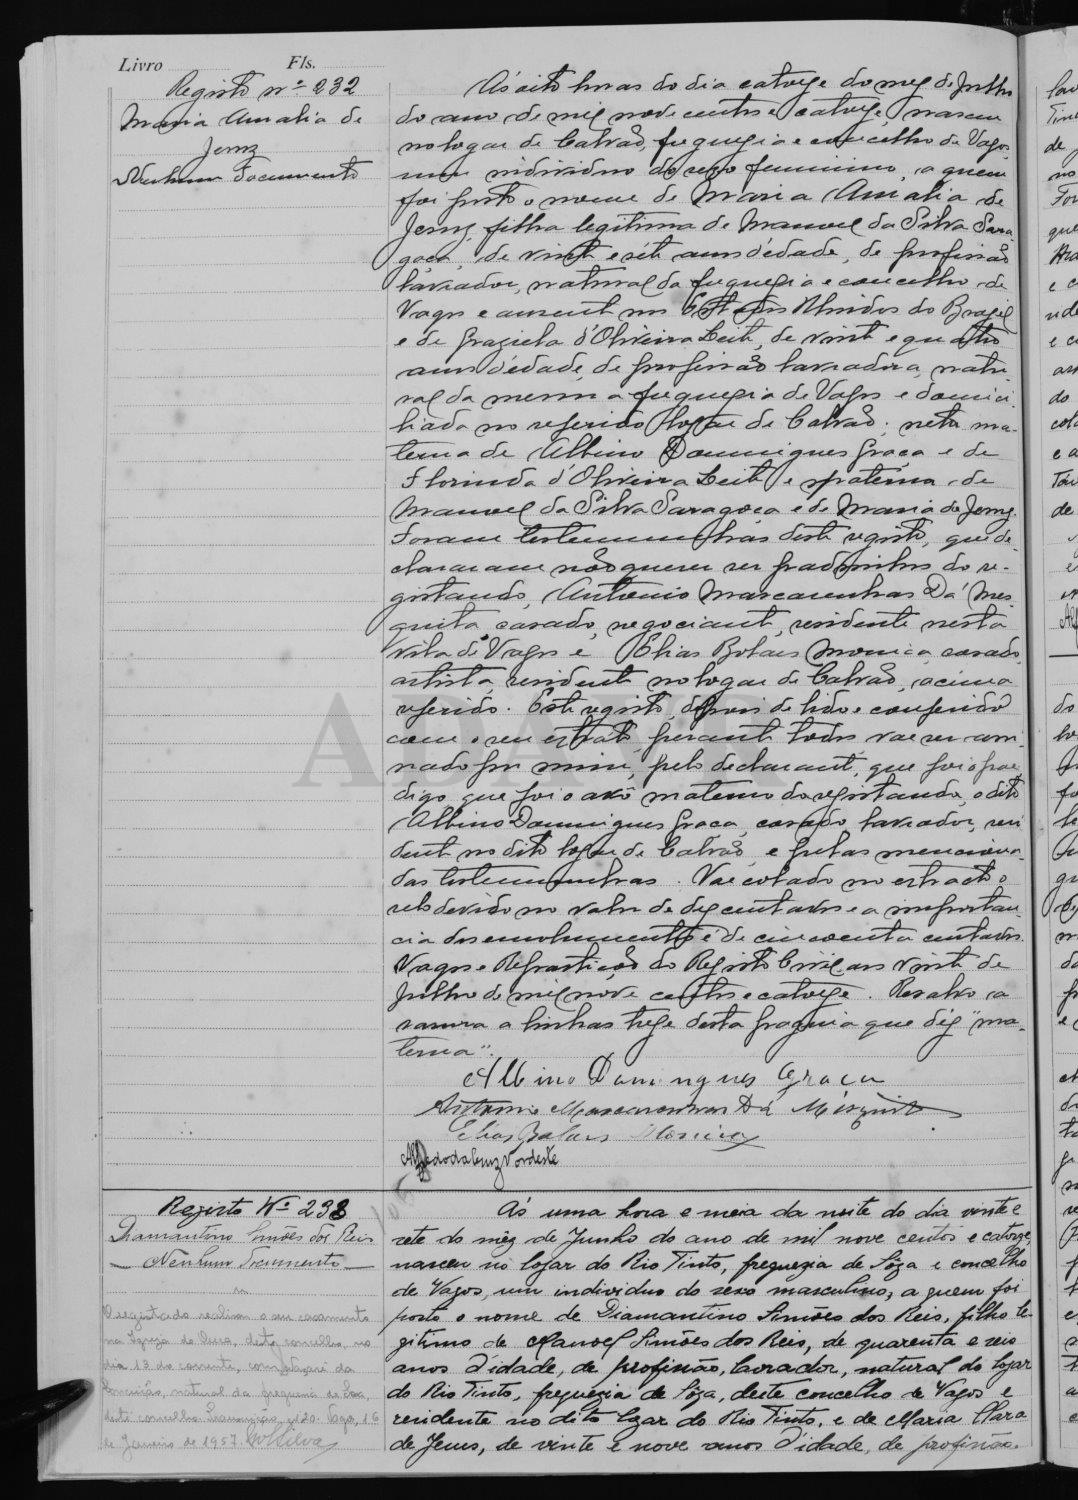 Livro Fls.
Registo nº 232
Maria Amalia de
Jesus
Nenhum Documento
Ás oito horas do dia catorze do mez de Julho
do ano de mil nove centos e catorze, nasceu
no logar de Calvão, freguezia e concelho de Vagos
um individuo do sexo feminino, a quem
foi posto o nome de Maria Amalia de
Jesus, filha legitima de Manoel da Silva Sara-
goça, de vinte e séte anos d'édade, de profissão
lavrador, natural da freguezia e concelho de
Vagos e ausente nos Estados Unidos do Brazil
e de Graziela d'Oliveira Leite, de vinte e quatro
anos d'édade, de profissão lavradora, natu-
ral da mesma freguezia de Vagos e domici-
liada no referido logar de Calvão; neta ma-
terna de Albino Domingues Graça e de
Florinda d'Oliveira Leite e paterna de
Manoel da Silva Saragoça e de Maria de Jesus.
Foram testemunhas deste registo, que de-
clararam não querer ser padrinhos do re-
gistando, Antonio Mascarenhas Dá Mes-
quita casado, negociante, residente nesta
Vila de Vagos e Elias Bolaes Monica, casado,
artista, residente no logar de Calvão, acima
referido. Este registo, depois de lido e conferido
com o seu estrato, perante todos, vae ser assi-
nado por mim, pelo declarante, que foi o pae
digo, que foi o avô materno do registando, o dito
Albino Domingues Graça, casado, lavrador, resi-
dente no dito logar de Calvão, e pelas menciona-
das testemunhas. Vae colado no estracto o
selo devido no valor de dez centavos e a importan-
cia dos emolumentos é de cincoenta centavos.
Vagos e Repartição do Registo Civil aos vinte de
Julho de mil nove centos e catorze. Resalvo a
rasura a linhas treze desta pagina que diz "ma-
terna".
Albino Domingues Graça
Antonio Mascarenhas Dá Mesquita
Elias Bolaes Monica
Alfredo da Cruz Nordeste
Registo Nº 233
Diamantino Simões dos Reis
Nenhum Documento
O registado realizou o seu casamento
na Igreja de Soza, deste concelho, no
dia 13 do corrente, com da
Conceição, natural da freguezia de Soza,
deste concelho. Vagos, 16
de Janeiro de 1957. Silva
Ás uma hora e meia da noite do dia vinte e
sete do mêz de Junho do ano de mil nove centos e catorze,
nasceu no logar do Rio Tinto, freguezia de Sôza e concelho
de Vagos, um individuo do sexo masculino, a quem foi
posto o nome de Diamantino Simões dos Reis, filho le-
gitimo de Manoel Simões dos Reis, de quarenta e seis
anos d'idade, de profissão, lavrador, natural do logar
do Rio Tinto, freguezia de Sôza, deste concelho de Vagos e
residente no dito logar do Rio Tinto, e de Maria Clara
de Jesus, de vinte e nove anos d'idade, de profissão